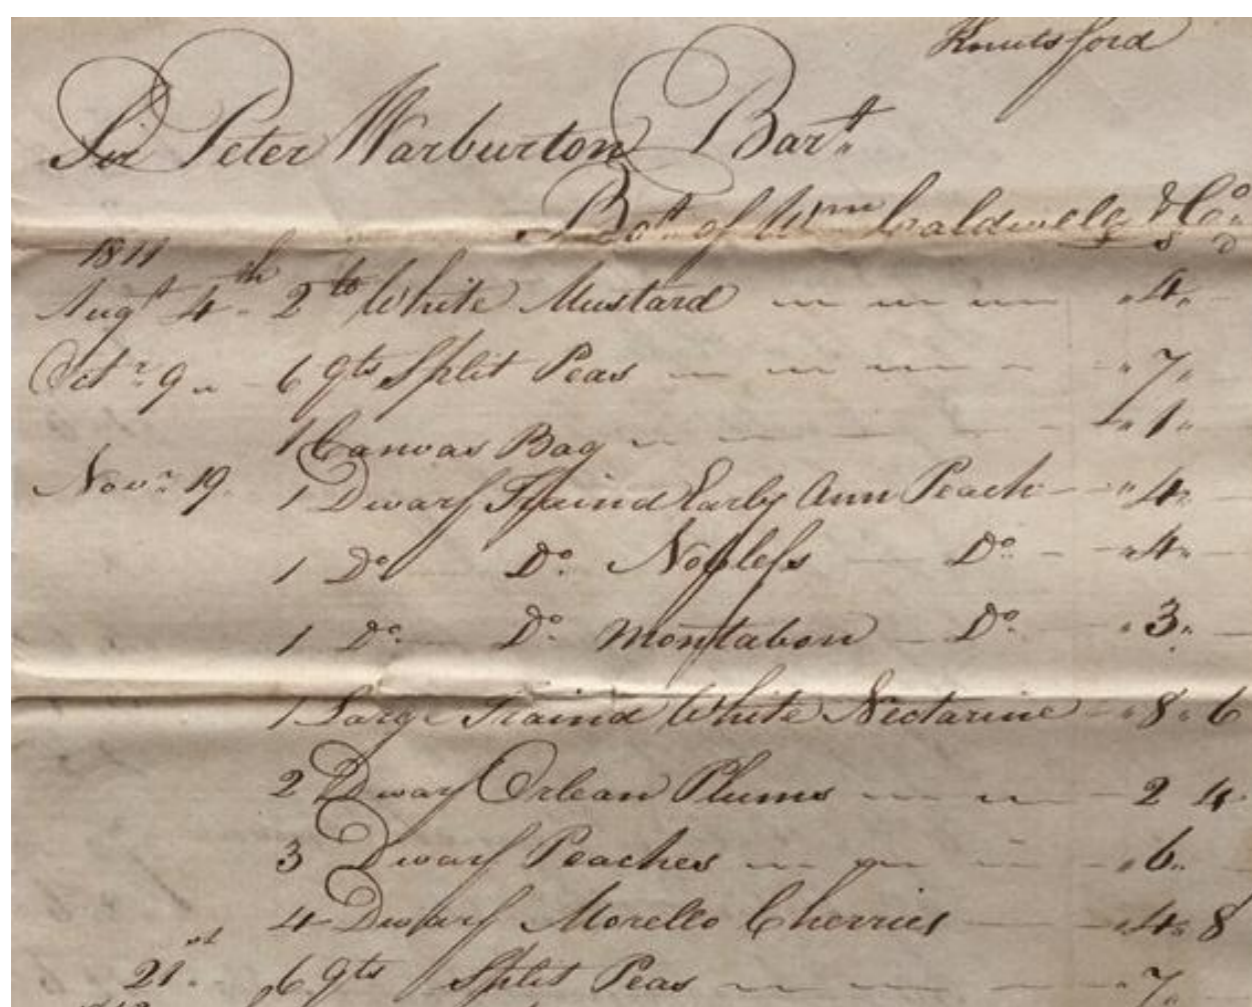 Knutsford
Sir Peter Warburton Bar.t
Bo.t of Wm Caldwell & Co.
1811 s D
Augt 4th 2 lb White Mustard " 4 "
Octr 9 " 6 qts Split Peas " 7 "
1 Canvas Bag " 1 "
Novr 19. 1 Dwarf Traind Early Ann Peach " 4 "
1 Do. Do. Nobless Do. " 4 "
1 Do. Do. Montabon Do. " 3 "
1 Large Traind White Nectarine " 8 " 6
2 Dwarf Orlean Plums 2 4
3 Dwarf Peaches " 6 "
4 Dwarf Morello Cherries " 4 " 8
21st 6 qts Split Peas " 7